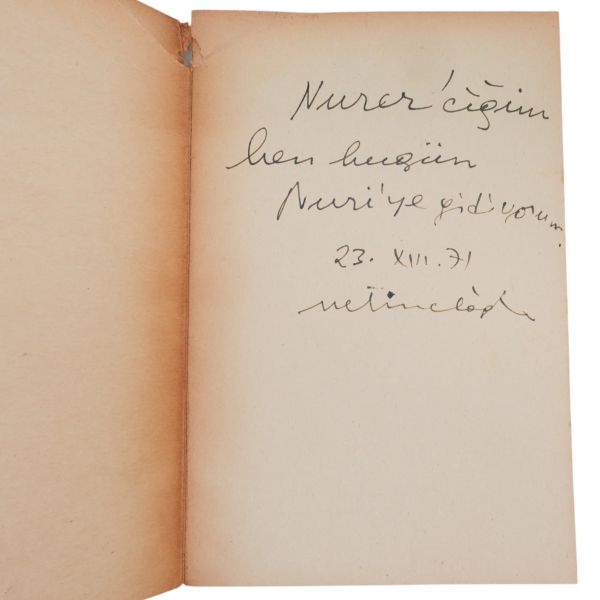 Nurer'ciğim
ben bugün
Nuri'ye gidiyorum.
23. XIII. 71